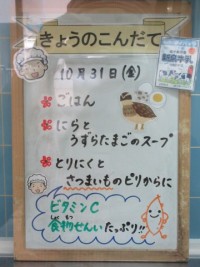 きょうのこんだて
10月31日(金)
ごはん
にらと
うずらたまごのスープ
とりにくと
さつまいものピリからに
ビタミンC
食物せんい たっぷり!!
しょくもつ